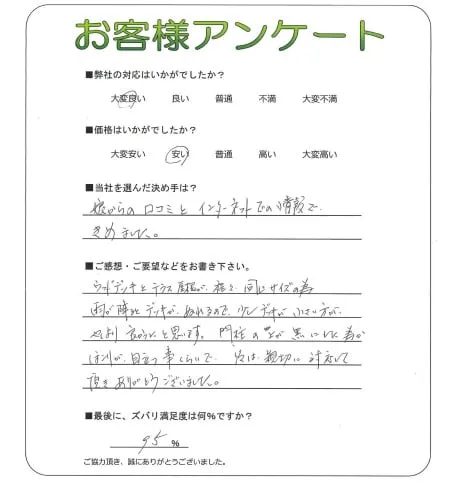 お客様アンケート
■弊社の対応はいかがでしたか？
大変良い 良い 普通 不満 大変不満
■価格はいかがでしたか？
大変安い 安い 普通 高い 大変高い
■当社を選んだ決め手は？
娘からの口コミとインターネットでの情報で
きめました。
■ご感想・ご要望などをお書き下さい。
ウッドデッキとテラス屋根が 同じサイズの為
雨が降ると デッキが、ぬれるので、少しデッキが 小さい方が、
やはり 良かったと思います。 門柱の 黒にした為か
目立つ事くらいで、 親切に 対応して
頂きありがとうございました。
■最後に、ズバリ満足度は何％ですか？
95 ％
ご協力頂き、誠にありがとうございました。